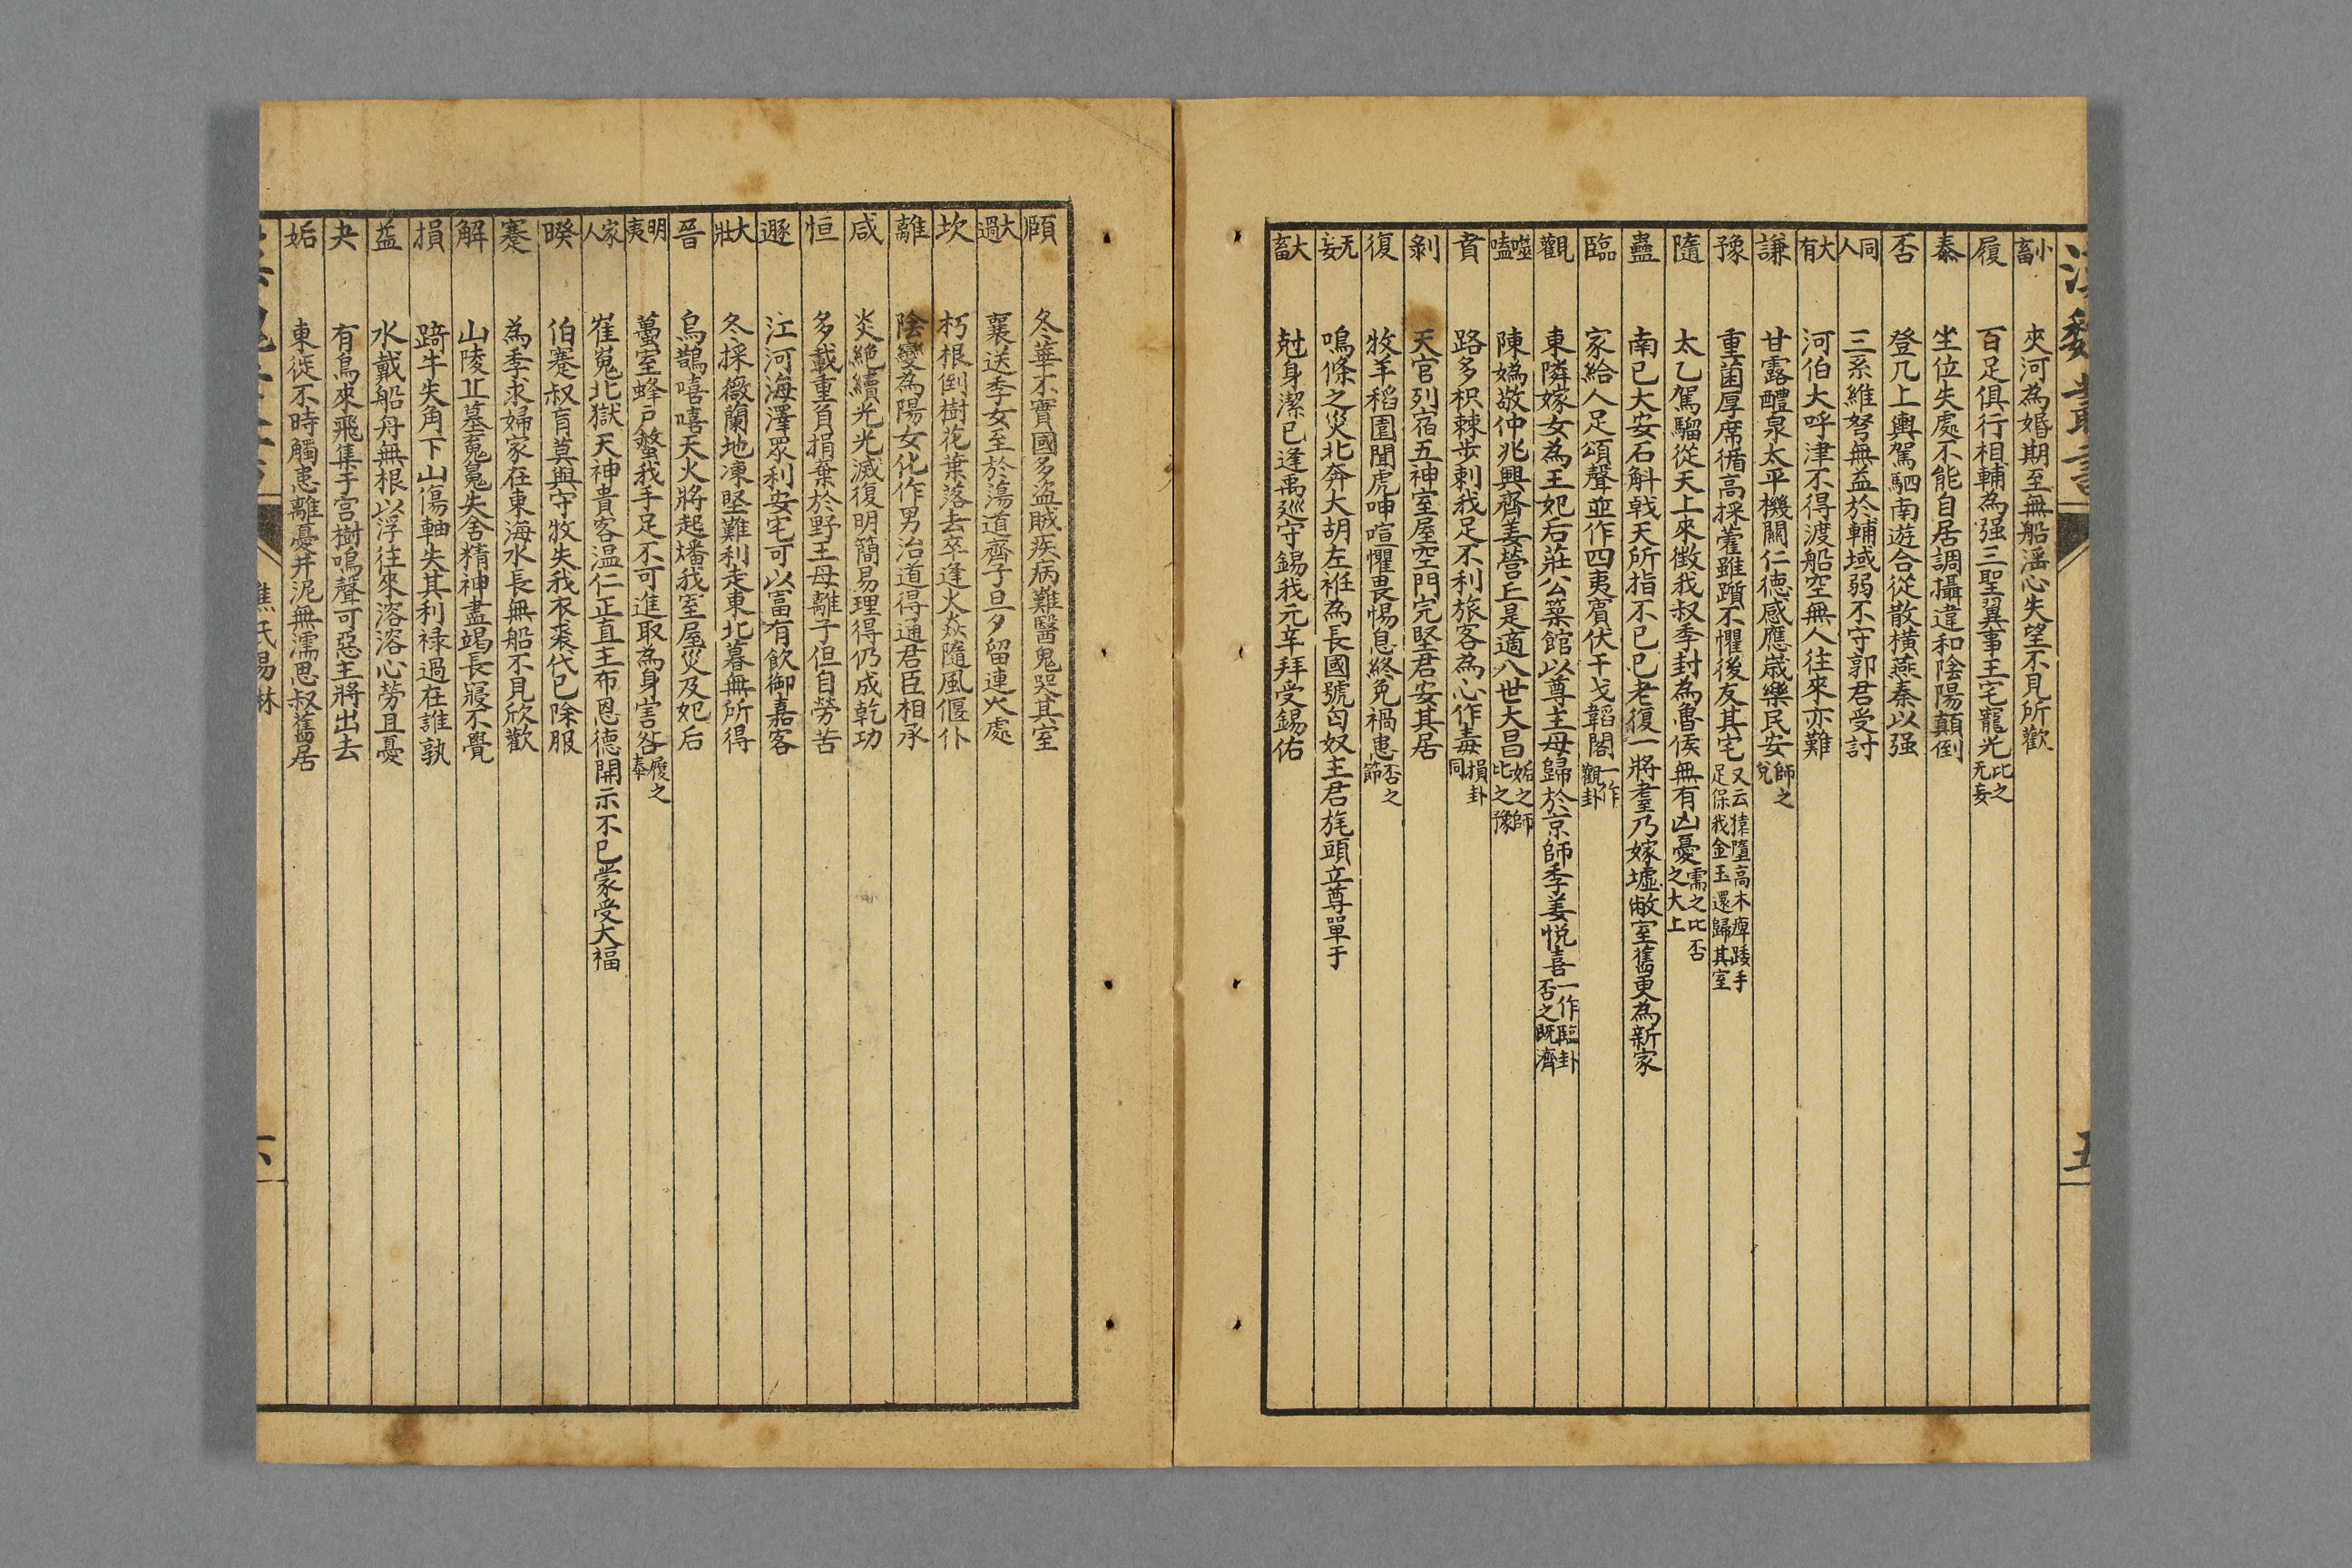 小畜 夾河為婚期至無船淫心失望不見所歡
履 百足俱行相輔為强三聖翼事王宅寵光比之无妄
泰 坐位失處不能自居調攝違和陰陽顛倒
否 登几上輿駕駟南遊合從散橫燕秦以强
同人 三系維弩無益於輔域弱不守郭君受討
大有 河伯大呼津不得渡船空無人往來亦難
謙 甘露醴泉太平機關仁德感應歲樂民安師之兌
豫 重茵厚席循高採藿雖躓不懼後友其宅又云猿墮高木痺踒手足保我金玉還歸其室
隨 太乙駕騮從天上來徵我叔季封為魯侯無有凶憂需之比否之大上
蠱 南巳大安石斛戟天所指不已已老復一將耋乃嫁墟敝室舊更為新家
臨 家給人足頌聲並作四夷賓伏干戈韜閣一作觀卦
觀 東隣嫁女為王妃后莊公築館以尊主母歸於京師季姜悅喜一作臨卦否之既濟
噬嗑 陳媯敬仲兆興齊姜營丘是適八世大昌姤之師比之豫
賁 路多枳棘步刺我足不利旅客為心作毒損卦同
剝 天官列宿五神室屋空門完堅君安其居
復 牧羊稻園聞虎呻喧懼畏惕息終免禍患否之節
无妄 鳴條之災北奔大胡左袵為長國號匈奴主君旄頭立尊單于
大畜 尅身潔已逢禹巡守錫我元辛拜受錫佑
頤 冬華不實國多盜賊疾病難醫鬼哭其室
大過 襄送季女至於蕩道齊子旦夕留連久處
坎 朽根倒樹花葉落去卒逢火焱隨風偃仆
離 陰變為陽女化作男治道得通君臣相承
咸 炎絶續光光滅復明簡易理得仍成乾功
恒 多載重負捐棄於野王母離子但自勞苦
遯 江河海澤眾利安宅可以富有飲御嘉客
大壯 冬採薇蘭地凍堅難利走東北暮無所得
晉 烏鵲嘻嘻天火將起燔我室屋災及妃后
明夷 萬室蜂戶螫我手足不可進取為身害咎履之奉
家人 崔嵬北獄天神貴客温仁正直主布恩德開示不已蒙受大福
暌 伯蹇叔盲莫與守牧失我衣裘代已除服
蹇 為季求婦家在東海水長無船不見欣歡
解 山陵丘墓魂䰟失舍精神盡竭長寢不覺
損 踦牛失角下山傷軸失其利禄過在誰孰
益 水戴船舟無根以浮往來溶溶心勞且憂
夬 有鳥來飛集于宮樹鳴聲可惡主將出去
姤 東徙不時觸患離憂井泥無濡思叔舊居